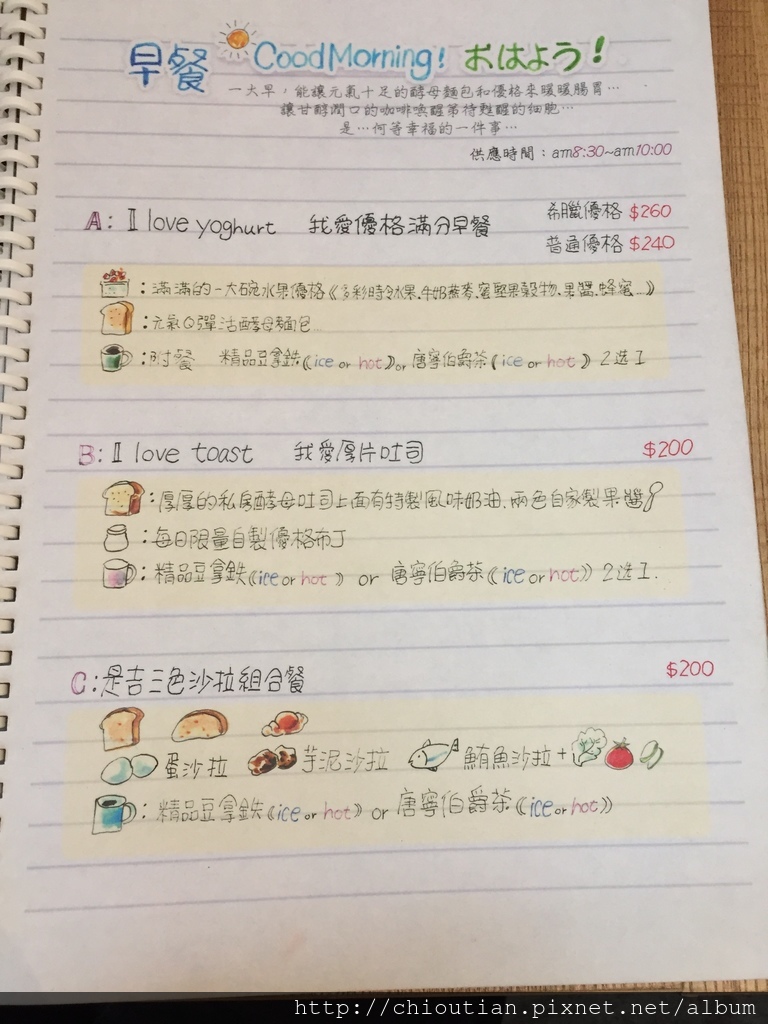 早餐 Good Morning! おはよう!
一大早，能讓元氣十足的酵母麵包和優格來暖暖腸胃…
讓甘醇潤口的咖啡喚醒等待甦醒的細胞…
是…何等幸福的一件事…
供應時間：am8:30~am10:00
A: I love yoghurt 我愛優格滿分早餐 希臘優格 $260
普通優格 $240
：滿滿的一大碗水果優格《多彩時令水果.牛奶燕麥.蜜堅果穀物.果醬.蜂蜜...》
：元氣Q彈活酵母麵包
：附餐 精品豆拿鉄《ice or hot》or 唐寧伯爵茶《ice or hot》2选1
B: I love toast 我愛厚片吐司 $200
：厚厚的私房酵母吐司上面有特製風味奶油.兩色自家製果醬
：每日限量自製優格布丁
：精品豆拿鉄《ice or hot》 or 唐寧伯爵茶《ice or hot》2选1.
C:是吉三色沙拉組合餐 $200
蛋沙拉 芋泥沙拉 鮪魚沙拉+
：精品豆拿鉄《ice or hot》or 唐寧伯爵茶《ice or hot》
http://chioutian.pixnet.net/album